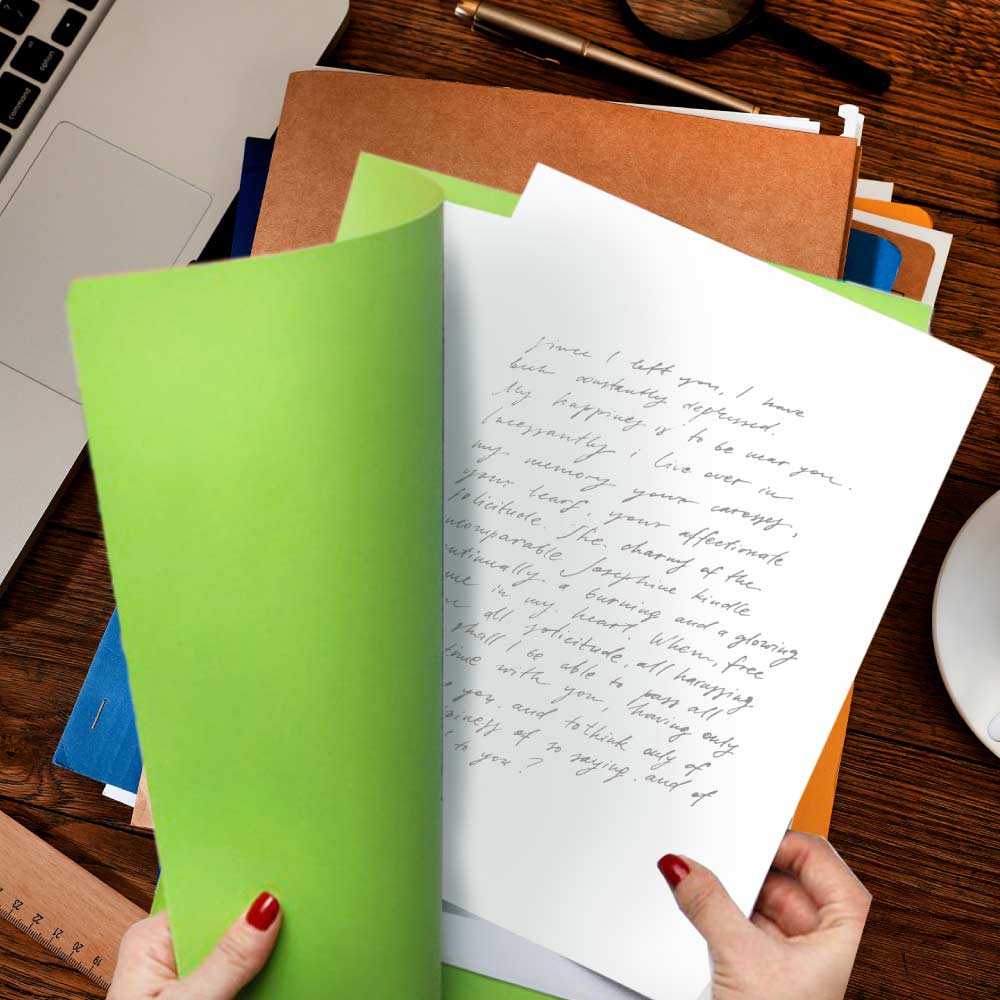 command
option
Since I left you, I have
been constantly depressed.
My happines is to be near you.
Incessantly i live over in
my memory your caresses,
your tears, your affectionate
solicitude. The charms of the
ncomparable Josephine kindle
ntinually a burning and a glowing
me in my heart. When, free
all solicitude, all harassing
shall I be able to pass all
time with you, having only
you, and to think only of
piness of so saying, and of
to you ?
23 22 21 20 19